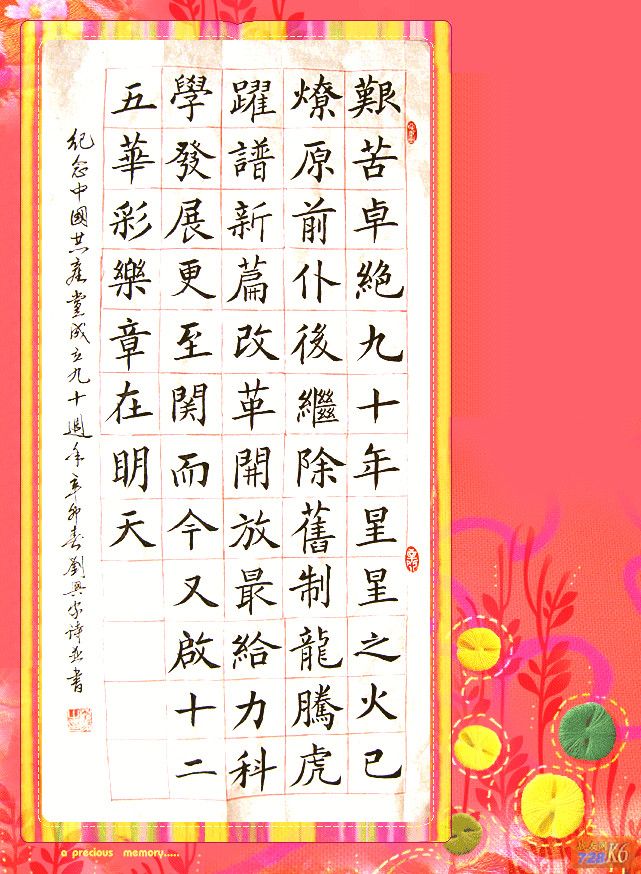 艱苦卓絕九十年星星之火已
燎原前仆後繼除舊制龍騰虎
躍譜新篇改革開放最給力科
學發展更至関而今又啟十二
五華彩樂章在明天
紀念中國共產黨成立九十週年辛卯春劉興家詩並書
a precious memory.....
728 K6